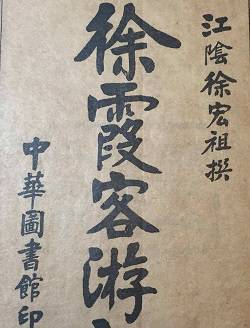 江陰徐宏祖撰
徐霞客游
中華圖書館印